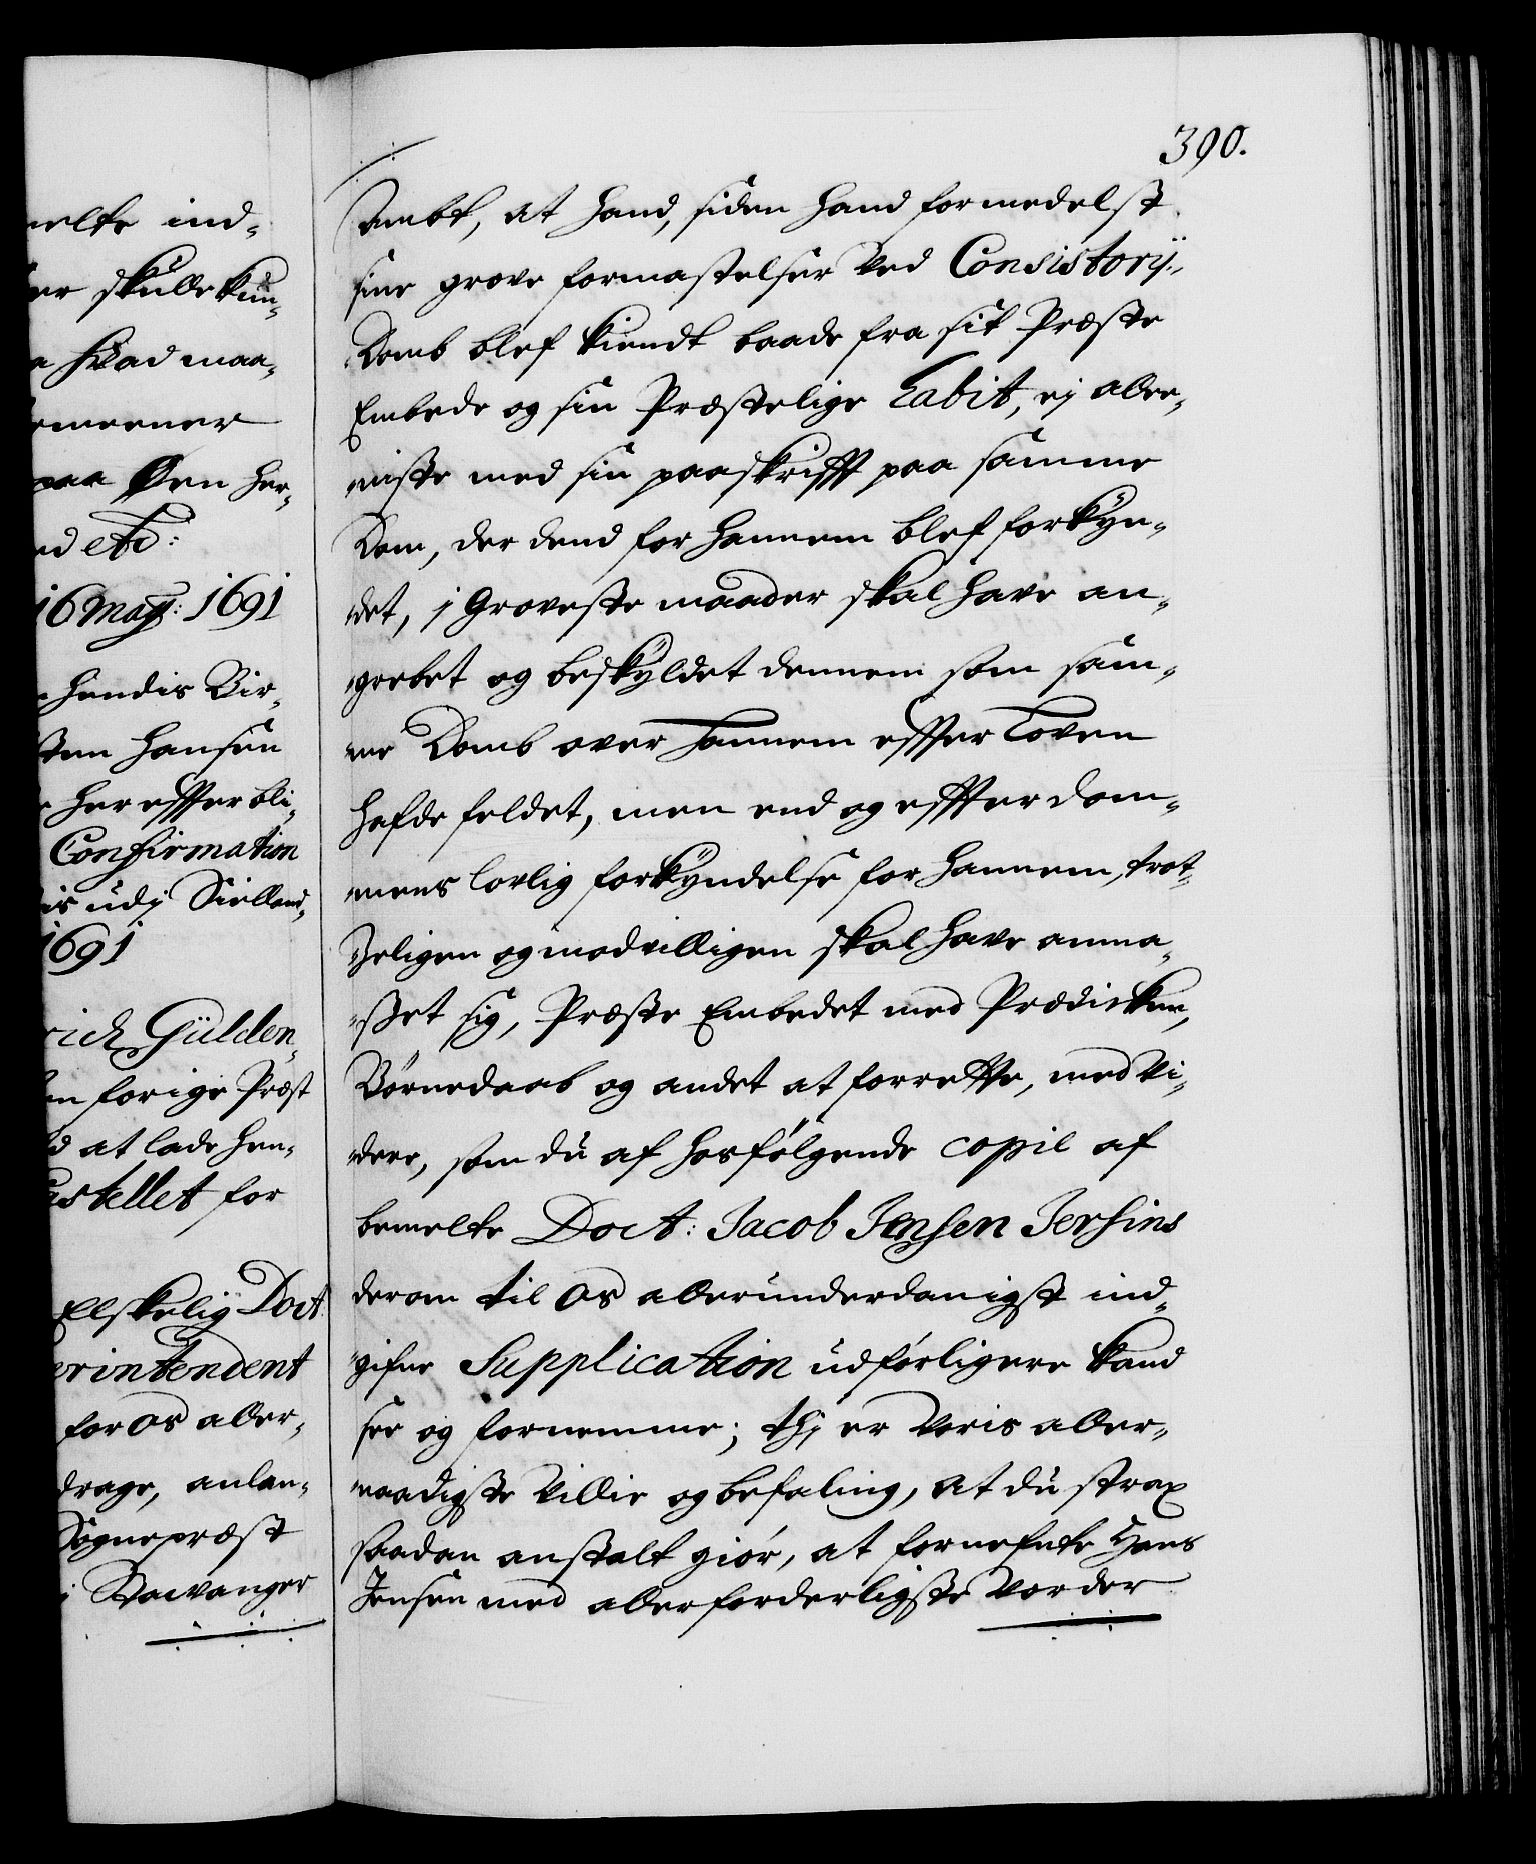 melte ind-
er skulle kun-
a hvad maa-
emeener
paa Øen her-
ed etc:
16 Maij: 1691
hendis Bir-
sten Hansen
her effter bli-
Confirmation
is udj Sielland-
1691
rich Gülden-
en forige Præst
d at lade hen-
Castellet for
Elskelig Doct
erintendent
for os aller-
drage, anlan-
Sognepræst
i Stavanger
390.
Ambt, at hand, siden hand formedelst
sine grove formastelser ved Consistorij-
Domb blef kiendt baade fra sit Præste
Embede og sin Præstelige Habit, ej alle-
niste med sin paaskrifft paa samme
Dom, der dend for hannem blef forkyn-
det, j Groveste maader skal have an-
grebet og beskyldet dennem som sam-
me Domb over hannem effter Loven
hafde feldet, men end og effter dom-
mens lovlig forkyndelse for hannem, trot-
zeligen og modvilligen skal have anma-
sset sig, Præste Embedet med Prædicken,
Børnedaab og andet at forrette, med Vi-
dere, som du af hosfølgende copie af
bemelte Doct: Jacob Jensen Jersins
derom til os allerunderdanigst ind-
gifne Supplication udførligere kand
see og fornemme; thj er Voris aller-
naadigste Villie og befaling, at du strax
saadan anstalt giør, at fornefnte Hans
Jensen med allerforderligste Vorder